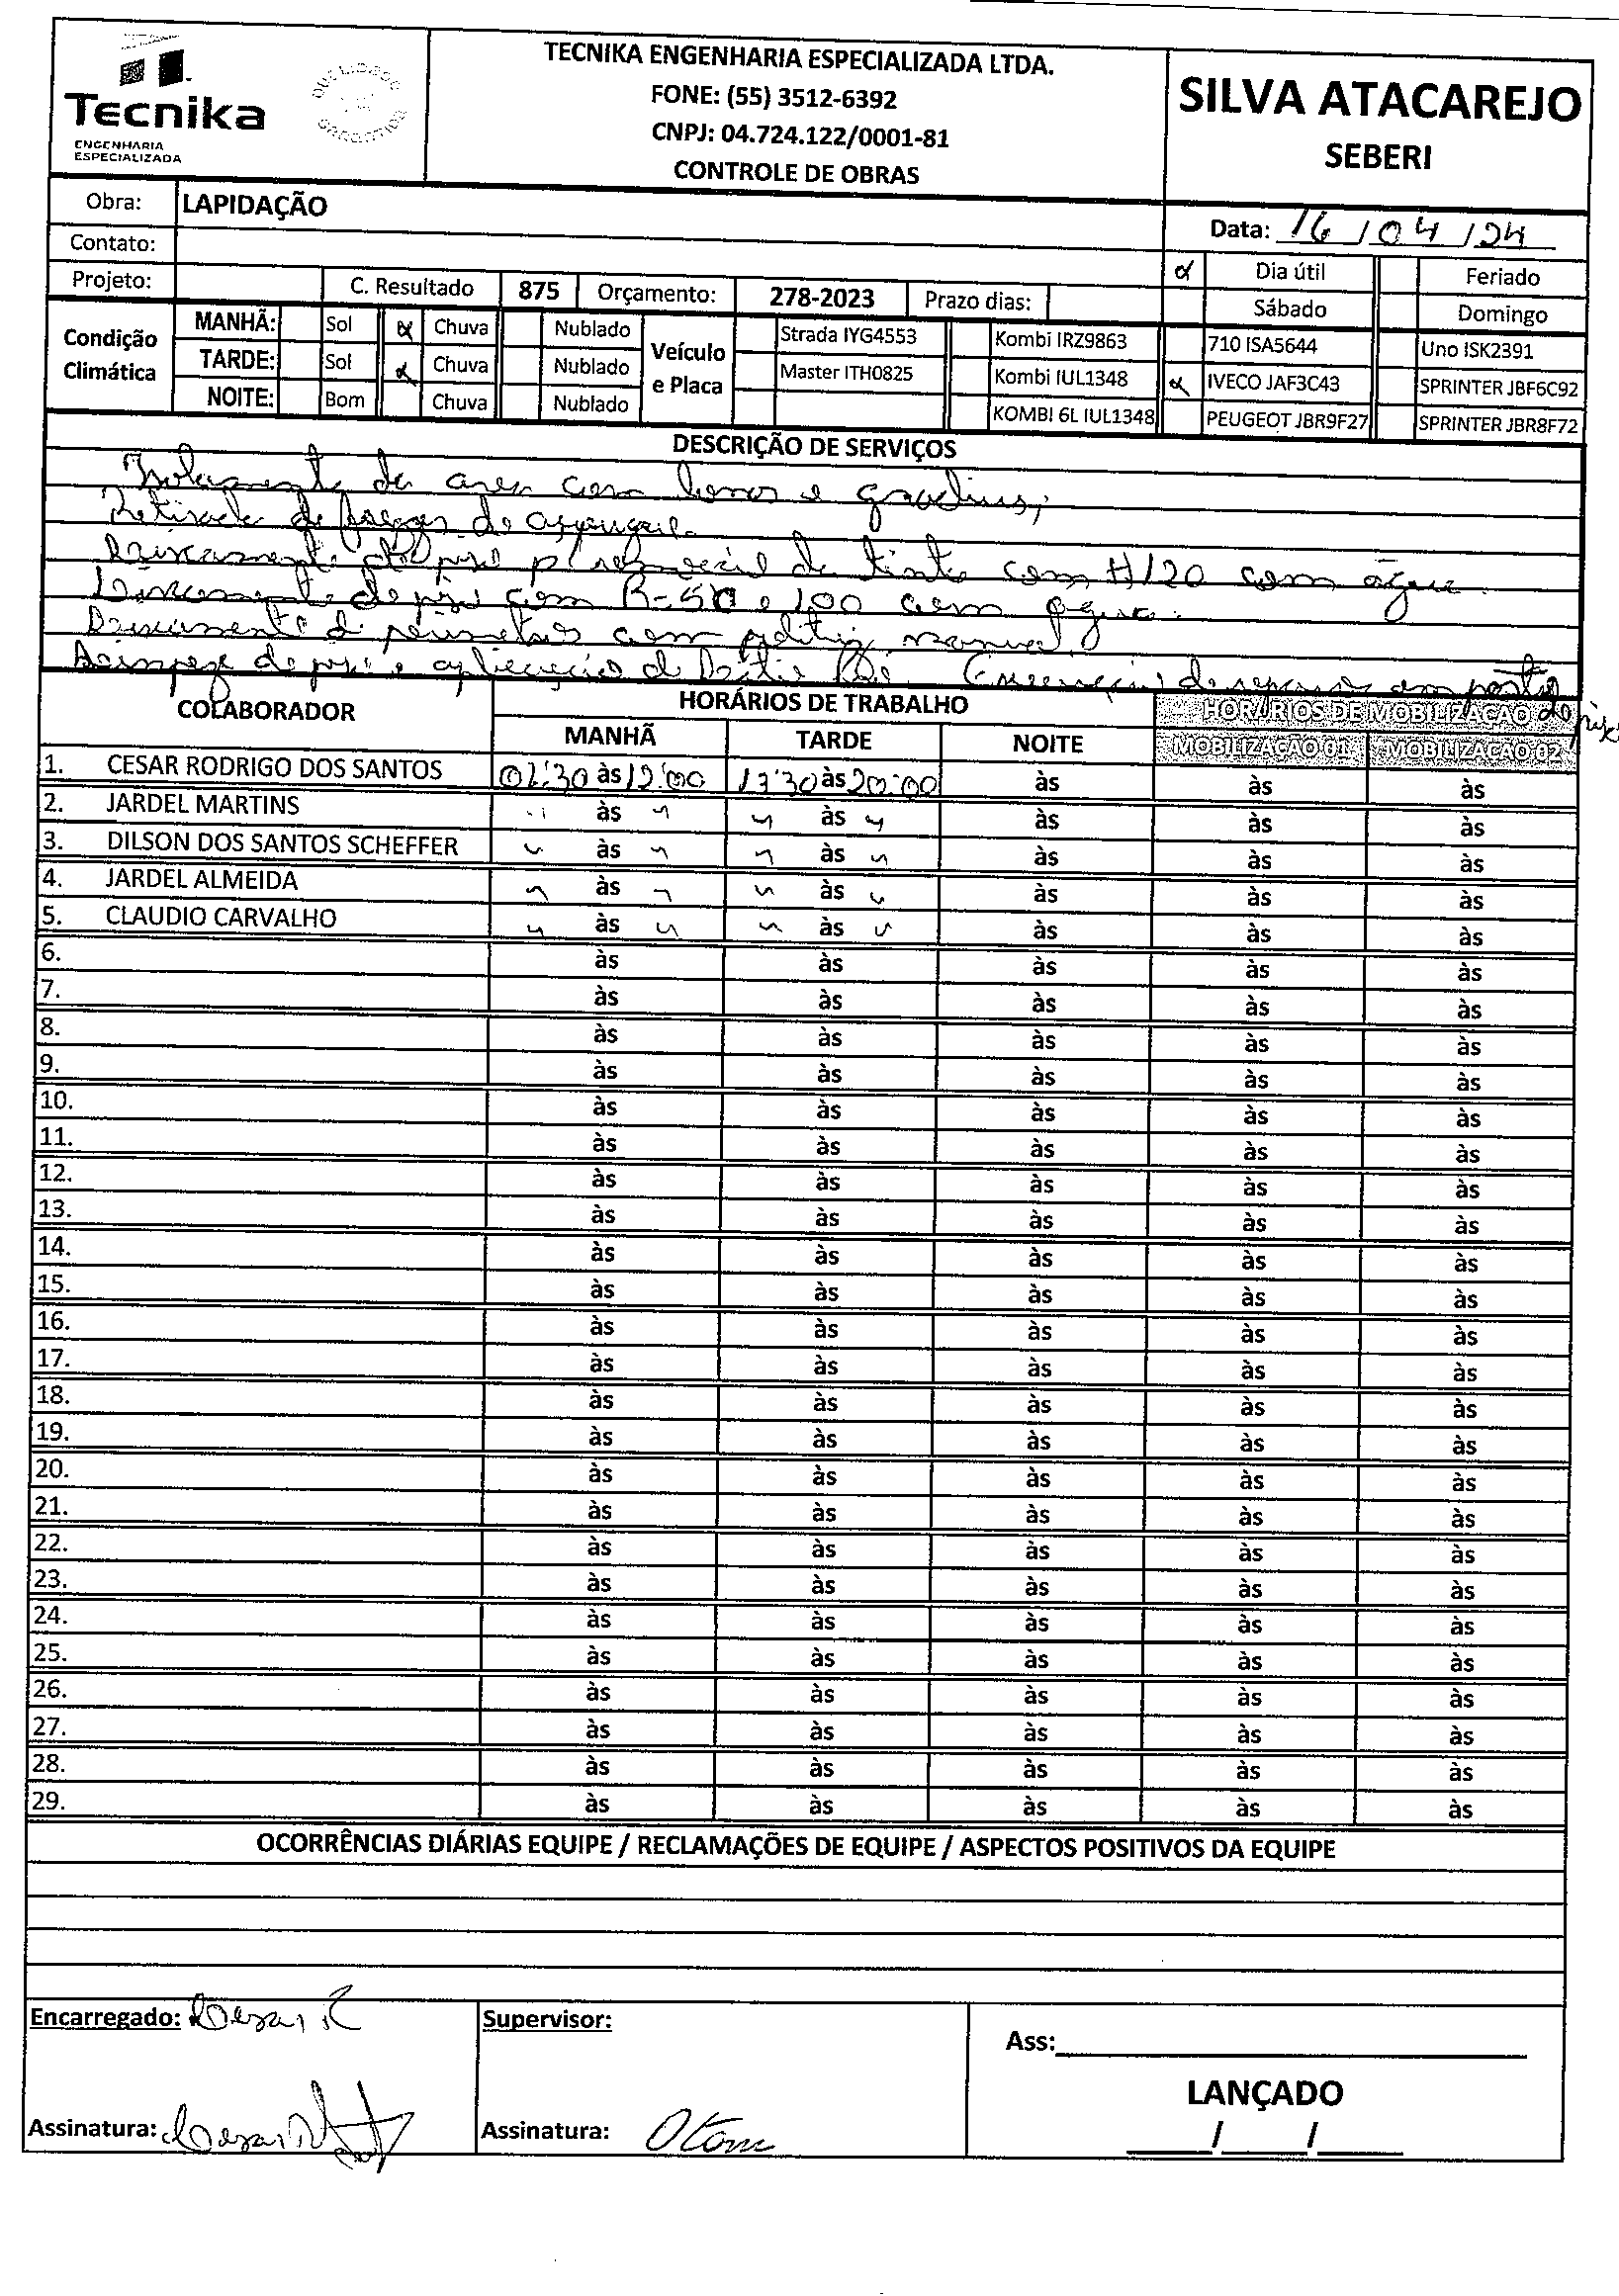 Tecnika
ENGENHARIA
ESPECIALIZADA
TECNIKA ENGENHARIA ESPECIALIZADA LTDA.
FONE: (55) 3512-6392
CNPJ: 04.724.122/0001-81
CONTROLE DE OBRAS
SILVA ATACAREJO
SEBERI
Obra: LAPIDAÇÃO
Data: 16/04/24
Contato:
Dia útil Feriado
Projeto: C. Resultado 875 Orçamento: 278-2023 Prazo dias:
Sábado Domingo
Condição Climática
MANHÃ: Sol Chuva Nublado
TARDE: Sol Chuva Nublado
NOITE: Bom Chuva Nublado
Veículo e Placa
Strada IYG4553 Kombi IRZ9863 710 ISA5644 Uno ISK2391
Master ITH0825 Kombi IUL1348 IVECO JAF3C43 SPRINTER JBF6C92
KOMBI 6L IUL1348 PEUGEOT JBR9F27 SPRINTER JBR8F72
DESCRIÇÃO DE SERVIÇOS
Isolamento da area com lonas e
Retirada de de
piso p/ de tinta com #120 com água
de piso com e 100 com agua.
com manual
de piso e aplicação de
COLABORADOR HORÁRIOS DE TRABALHO HORÁRIOS DE MOBILIZAÇÃO
MANHÃ TARDE NOITE MOBILIZAÇÃO 01 MOBILIZAÇÃO 02
1. CESAR RODRIGO DOS SANTOS 07:30 às 12:00 13:30 às 20:00 às às às
2. JARDEL MARTINS " às " " às " às às às
3. DILSON DOS SANTOS SCHEFFER " às " " às " às às às
4. JARDEL ALMEIDA " às " " às " às às às
5. CLAUDIO CARVALHO " às " " às " às às às
6. às às às às às
7. às às às às às
8. às às às às às
9. às às às às às
10. às às às às às
11. às às às às às
12. às às às às às
13. às às às às às
14. às às às às às
15. às às às às às
16. às às às às às
17. às às às às às
18. às às às às às
19. às às às às às
20. às às às às às
21. às às às às às
22. às às às às às
23. às às às às às
24. às às às às às
25. às às às às às
26. às às às às às
27. às às às às às
28. às às às às às
29. às às às às às
OCORRÊNCIAS DIÁRIAS EQUIPE / RECLAMAÇÕES DE EQUIPE / ASPECTOS POSITIVOS DA EQUIPE
Encarregado: Cesar R
Supervisor:
Ass:
LANÇADO
Assinatura:
Assinatura:
/ /